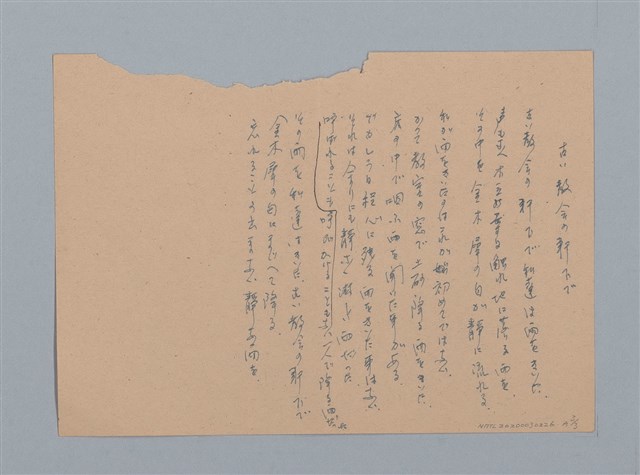 古い教会の軒下で
古い教会の軒下で私達は雨をきいた。
声もなく木立の葉に触れ地に落る雨を。
その中を金木犀の匂が静に流れる。
私が雨をきいたのはこれが始めてではない。
かつて教室の窓で土砂降る雨をきいた
床の中で咽ぶ雨を聞いた事がある。
でも今日程心に残る雨をきいた事はない。
それは余りにも静かな淋しい雨だった
呼ばれることも呼びかけることもない一人で降る雨だ
その雨を私達はきいた。古い教会の軒下で
金木犀の匂にまじへて降る
忘れることの出来ない静かな雨を。
NMTL20200032626